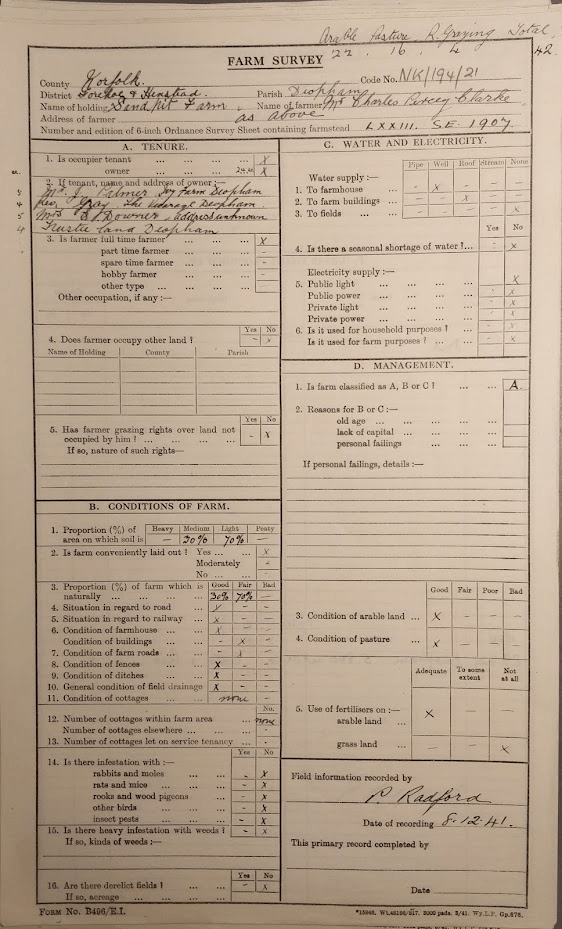 Arable Pasture R. Grazing Total
22 . 16 . 4 42.
FARM SURVEY
County Norfolk. Code No. NK/194/21
District Forehoe & Henstead. Parish Deopham
Name of holding Sandpit Farm. Name of farmer Mr Charles Percey Clarke
Address of farmer as above.
Number and edition of 6-inch Ordnance Survey Sheet containing farmstead LXXIII. SE. 1907.
A. TENURE.
1. Is occupier tenant ... ... ... X
owner ... ... ... X
2. If tenant, name and address of owner:—
Palmer Ivy Farm Deopham
Rev. Gray. The Vicarage Deopham.
Mrs Downer. address unknown
Trustee land Deopham
3. Is farmer full time farmer ... ... X
part time farmer ... ... -
spare time farmer ... ... -
hobby farmer ... ... -
other type ... ... ... -
Other occupation, if any:—
Yes No
4. Does farmer occupy other land? - X
Name of Holding County Parish
Yes No
5. Has farmer grazing rights over land not
occupied by him? ... ... ... ... - X
If so, nature of such rights—
B. CONDITIONS OF FARM.
1. Proportion (%) of Heavy Medium Light Peaty
area on which soil is — 30% 70% —
2. Is farm conveniently laid out? Yes ... ... X
Moderately -
No ... ... -
3. Proportion (%) of farm which is Good Fair Bad
naturally ... ... ... ... 30% 70% —
4. Situation in regard to road ... X - -
5. Situation in regard to railway ... X - -
6. Condition of farmhouse ... ... X - -
Condition of buildings ... ... - X -
7. Condition of farm roads ... ... - X -
8. Condition of fences ... ... X - -
9. Condition of ditches ... ... X - -
10. General condition of field drainage X - -
11. Condition of cottages ... ... none -
No.
12. Number of cottages within farm area ... none
Number of cottages elsewhere ... ... -
13. Number of cottages let on service tenancy ... -
Yes No
14. Is there infestation with:—
rabbits and moles ... ... - X
rats and mice ... ... ... - X
rooks and wood pigeons ... - X
other birds ... ... ... - X
insect pests ... ... ... - X
15. Is there heavy infestation with weeds? ... - X
If so, kinds of weeds:—
Yes No
16. Are there derelict fields? ... ... - X
If so, acreage ... ... ...
FORM No. B496/E.I.
C. WATER AND ELECTRICITY.
Water supply:— Pipe Well Roof Stream None
1. To farmhouse ... - X - - -
2. To farm buildings ... - - X - -
3. To fields ... ... - - - - X
Yes No
4. Is there a seasonal shortage of water? ... - X
Electricity supply:—
5. Public light ... ... ... ... - X
Public power ... ... ... ... - X
Private light ... ... ... ... - X
Private power ... ... ... ... - X
6. Is it used for household purposes? ... - X
Is it used for farm purposes? ... ... - X
D. MANAGEMENT.
1. Is farm classified as A, B or C? ... ... A.
2. Reasons for B or C:—
old age ... ... ... ...
lack of capital ... ... ...
personal failings
If personal failings, details:—
Good Fair Poor Bad
3. Condition of arable land ... X - - -
4. Condition of pasture ... X - - -
Adequate To some extent Not at all
5. Use of fertilisers on:—
arable land ... X — —
grass land ... — — X
Field information recorded by
P. Radford
Date of recording 8.12.41.
This primary record completed by
Date